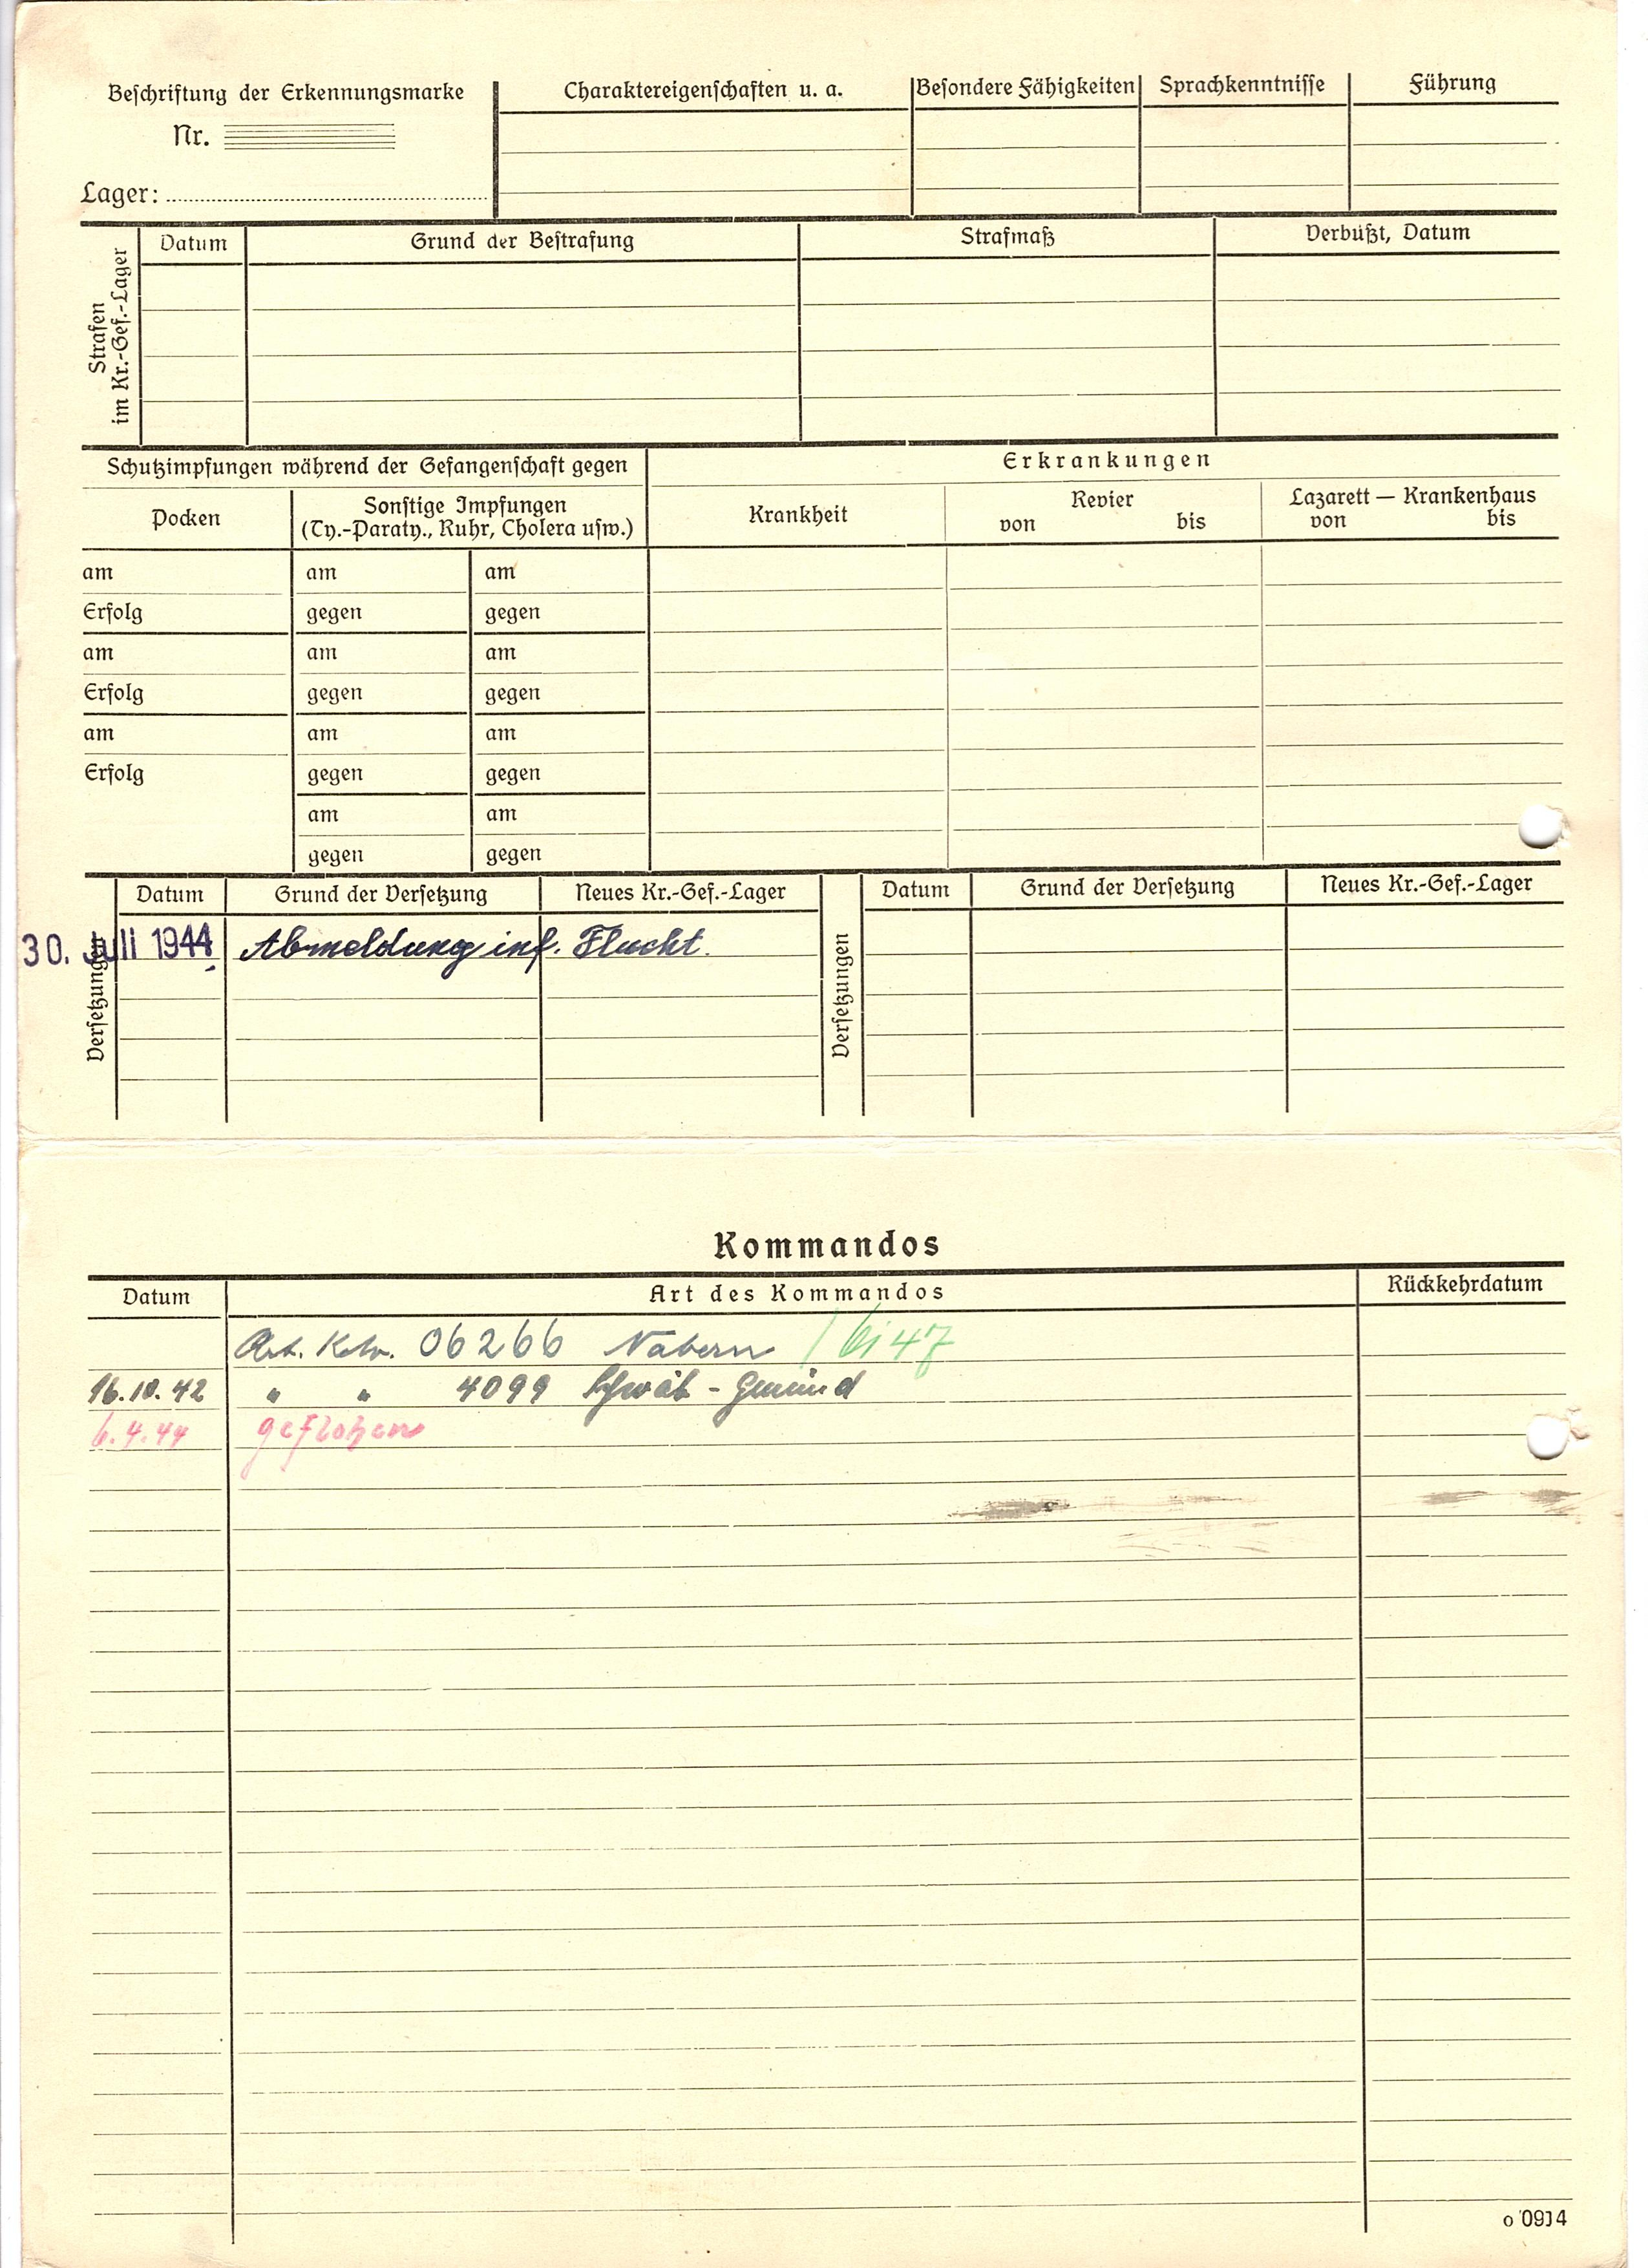 Beschriftung der Erkennungsmarke
Nr.
Lager:
Charaktereigenschaften u. a.
Besondere Fähigkeiten
Sprachkenntnisse
Führung
Strafen
im Kr.-Gef.-Lager
Datum
Grund der Bestrafung
Strafmaß
Verbüßt, Datum
Schutzimpfungen während der Gefangenschaft gegen
Erkrankungen
Pocken
Sonstige Impfungen
(Ty.-Paraty., Ruhr, Cholera usw.)
Krankheit
Revier
von bis
Lazarett — Krankenhaus
von bis
am am am
Erfolg gegen gegen
am am am
Erfolg gegen gegen
am am am
Erfolg gegen gegen
am am
gegen gegen
Versetzungen
Datum Grund der Versetzung Neues Kr.-Gef.-Lager
30. Juli 1944 Abmeldung inf. Flucht.
Versetzungen
Datum Grund der Versetzung Neues Kr.-Gef.-Lager
Kommandos
Datum Art des Kommandos Rückkehrdatum
Arb. Kdo. 06266 Nabern
16.10.42 " " 4099 Schwäb-Gmünd
6.4.44 geflohen
o 0914